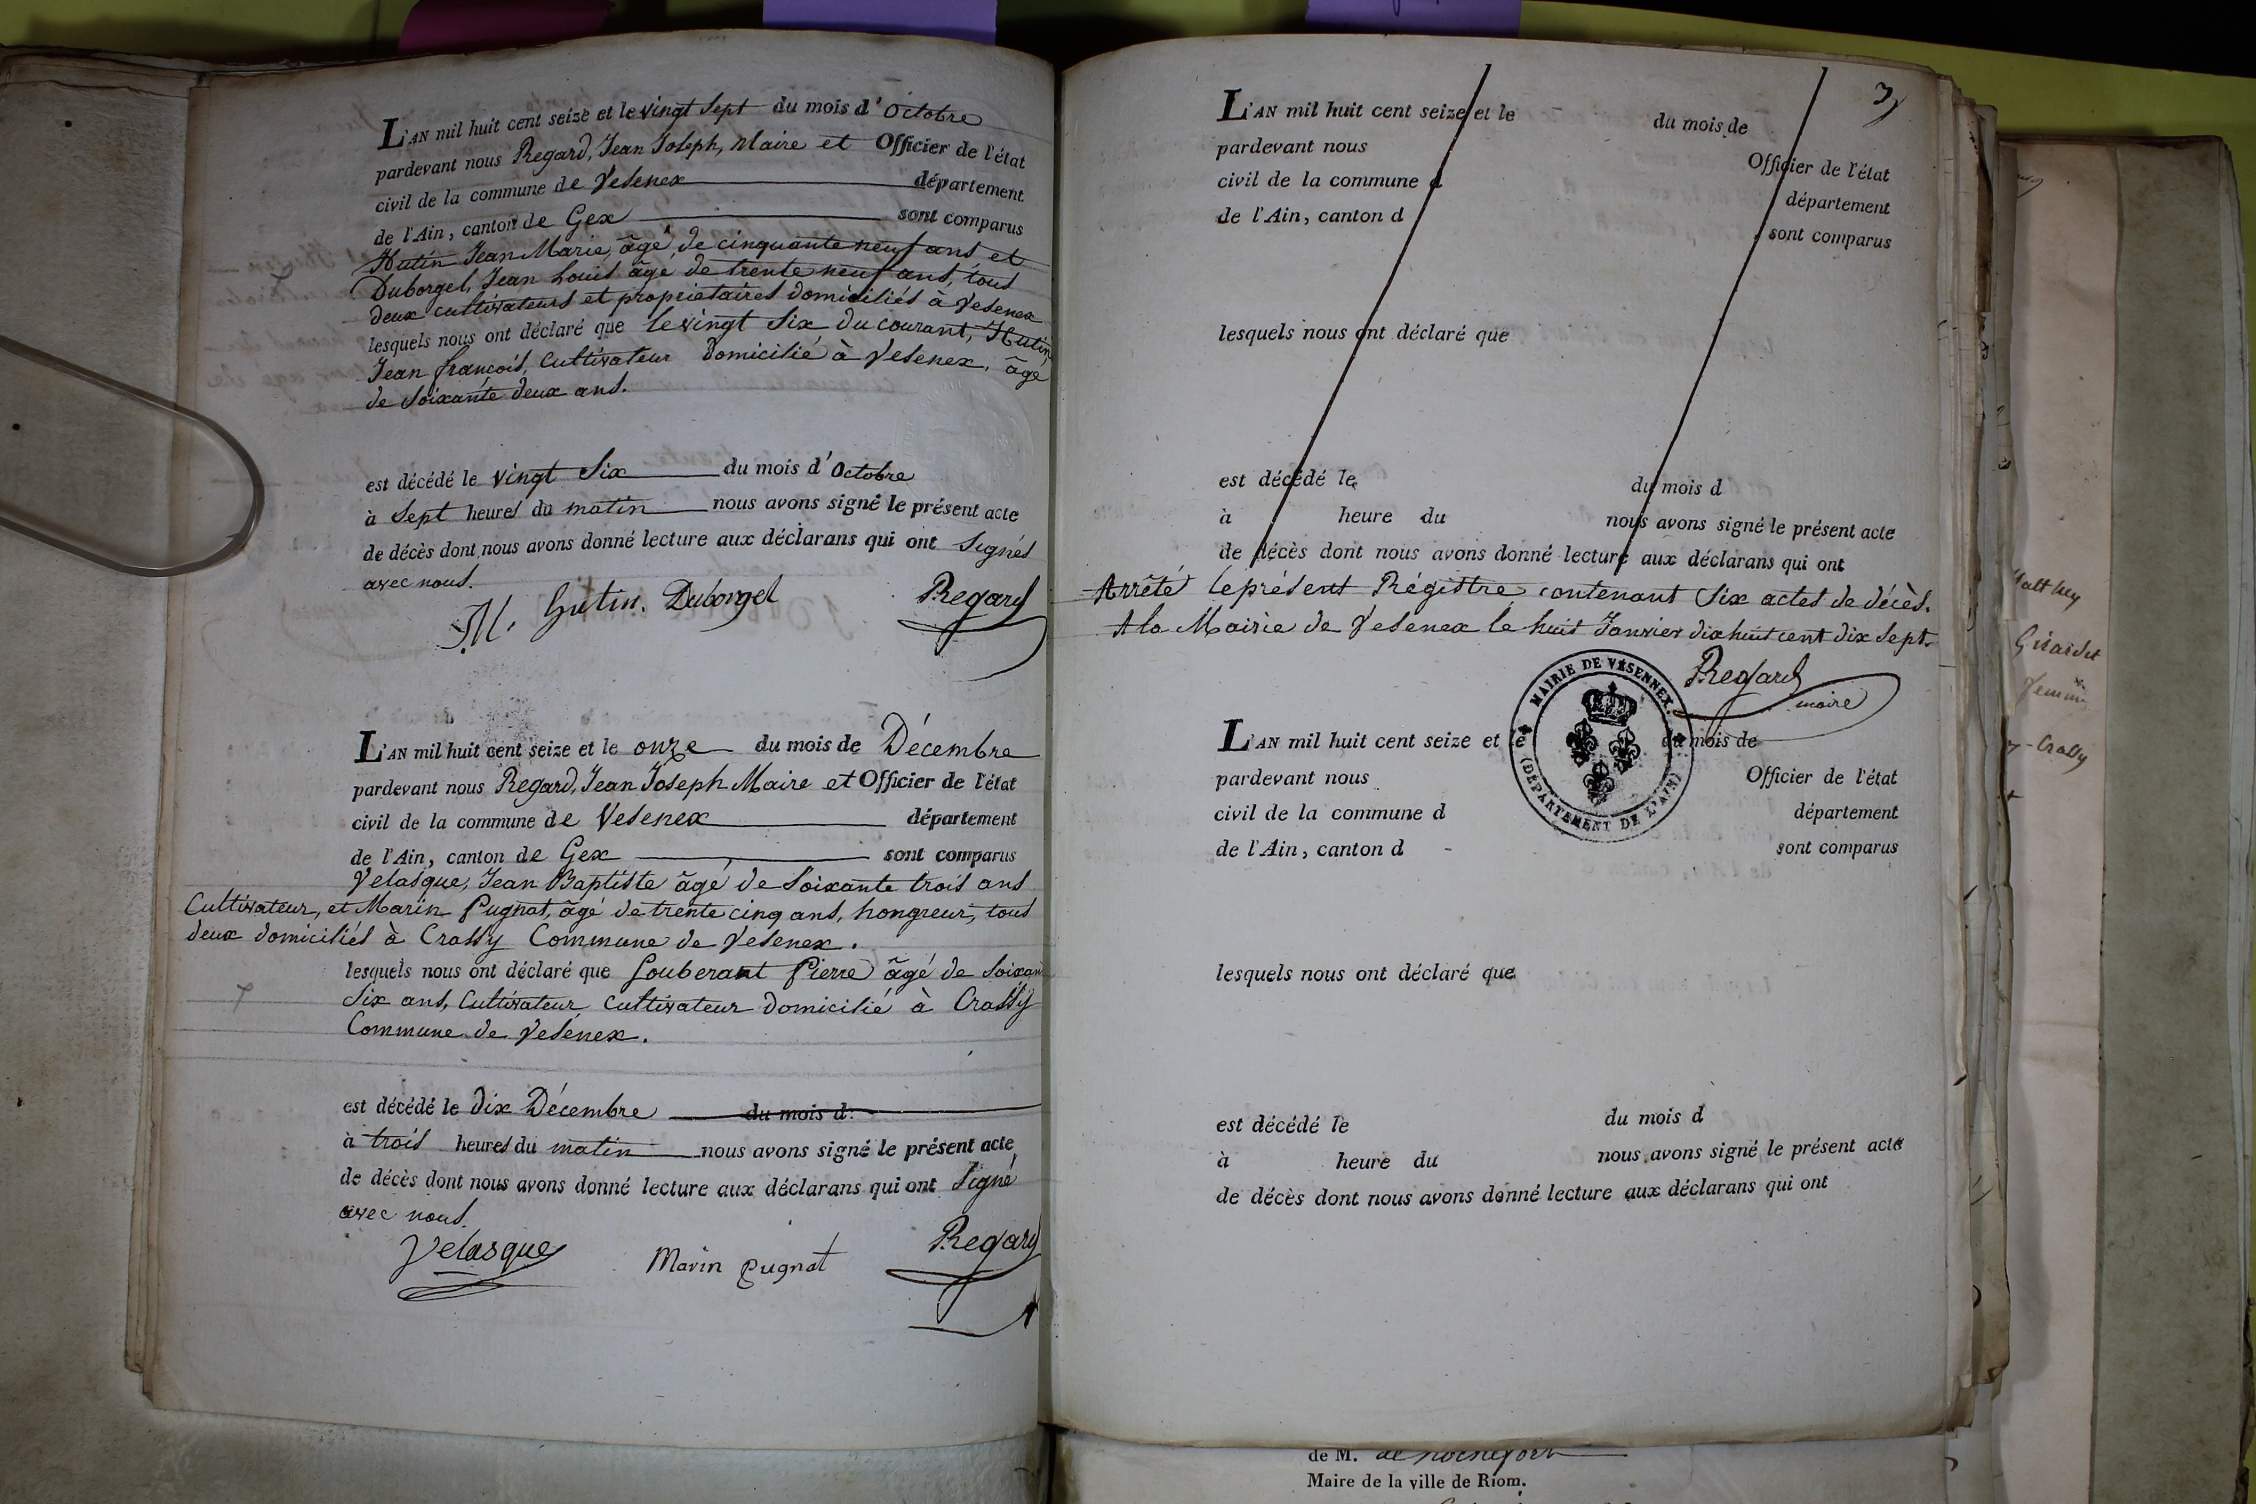 L'AN mil huit cent seize et le vingt sept du mois d'Octobre
pardevant nous Regard, Jean Joseph, Maire et Officier de l'état
civil de la commune de Vesenex département
de l'Ain, canton de Gex sont comparus
Hutin Jean Marie, âgé de cinquante neuf ans et
Duborgel, Jean Louis âgé de trente neuf ans, tous
deux cultivateurs et propriétaires domiciliés à Vesenex
lesquels nous ont déclaré que le vingt six du courant, Hutin
Jean françois, cultivateur domicilié à Vesenex, âgé
de soixante deux ans.
est décédé le vingt six du mois d'Octobre
à sept heures du matin nous avons signé le présent acte
de décès dont nous avons donné lecture aux déclarans qui ont signés
avec nous.
J.M. hutin. Duborgel Regard
L'AN mil huit cent seize et le onze du mois de Décembre
pardevant nous Regard, Jean Joseph Maire et Officier de l'état
civil de la commune de Vesenex département
de l'Ain, canton de Gex sont comparus
Velasque, Jean Baptiste âgé de soixante trois ans
Cultivateur, et Marin Pugnat, âgé de trente cinq ans, hongreur, tous
deux domiciliés à Crassy Commune de Vesenex.
lesquels nous ont déclaré que Jouberant Pierre âgé de soixan
six ans, Cultivateur cultivateur domicilié à Crassy
Commune de Vesenex.
est décédé le dix Décembre du mois d
à trois heures du matin nous avons signé le présent acte
de décès dont nous avons donné lecture aux déclarans qui ont signé
avec nous.
Velasque Marin pugnat Regard
3
L'AN mil huit cent seize et le du mois de
pardevant nous Officier de l'état
civil de la commune d département
de l'Ain, canton d sont comparus
lesquels nous ont déclaré que
est décédé le du mois d
à heure du nous avons signé le présent acte
de décès dont nous avons donné lecture aux déclarans qui ont
Arrêté le présent Régistre contenant six actes de décès.
A la Mairie de Vesenex le huit Janvier dix huit cent dix sept.
Regard
maire
MAIRIE DE VÉSENNEX.
(DÉPARTEMENT DE L'AIN)
L'AN mil huit cent seize et le du mois de
pardevant nous Officier de l'état
civil de la commune d département
de l'Ain, canton d sont comparus
lesquels nous ont déclaré que
est décédé le du mois d
à heure du nous avons signé le présent acte
de décès dont nous avons donné lecture aux déclarans qui ont
Girardet
Crassy
de M. de Rochefort
Maire de la ville de Riom.